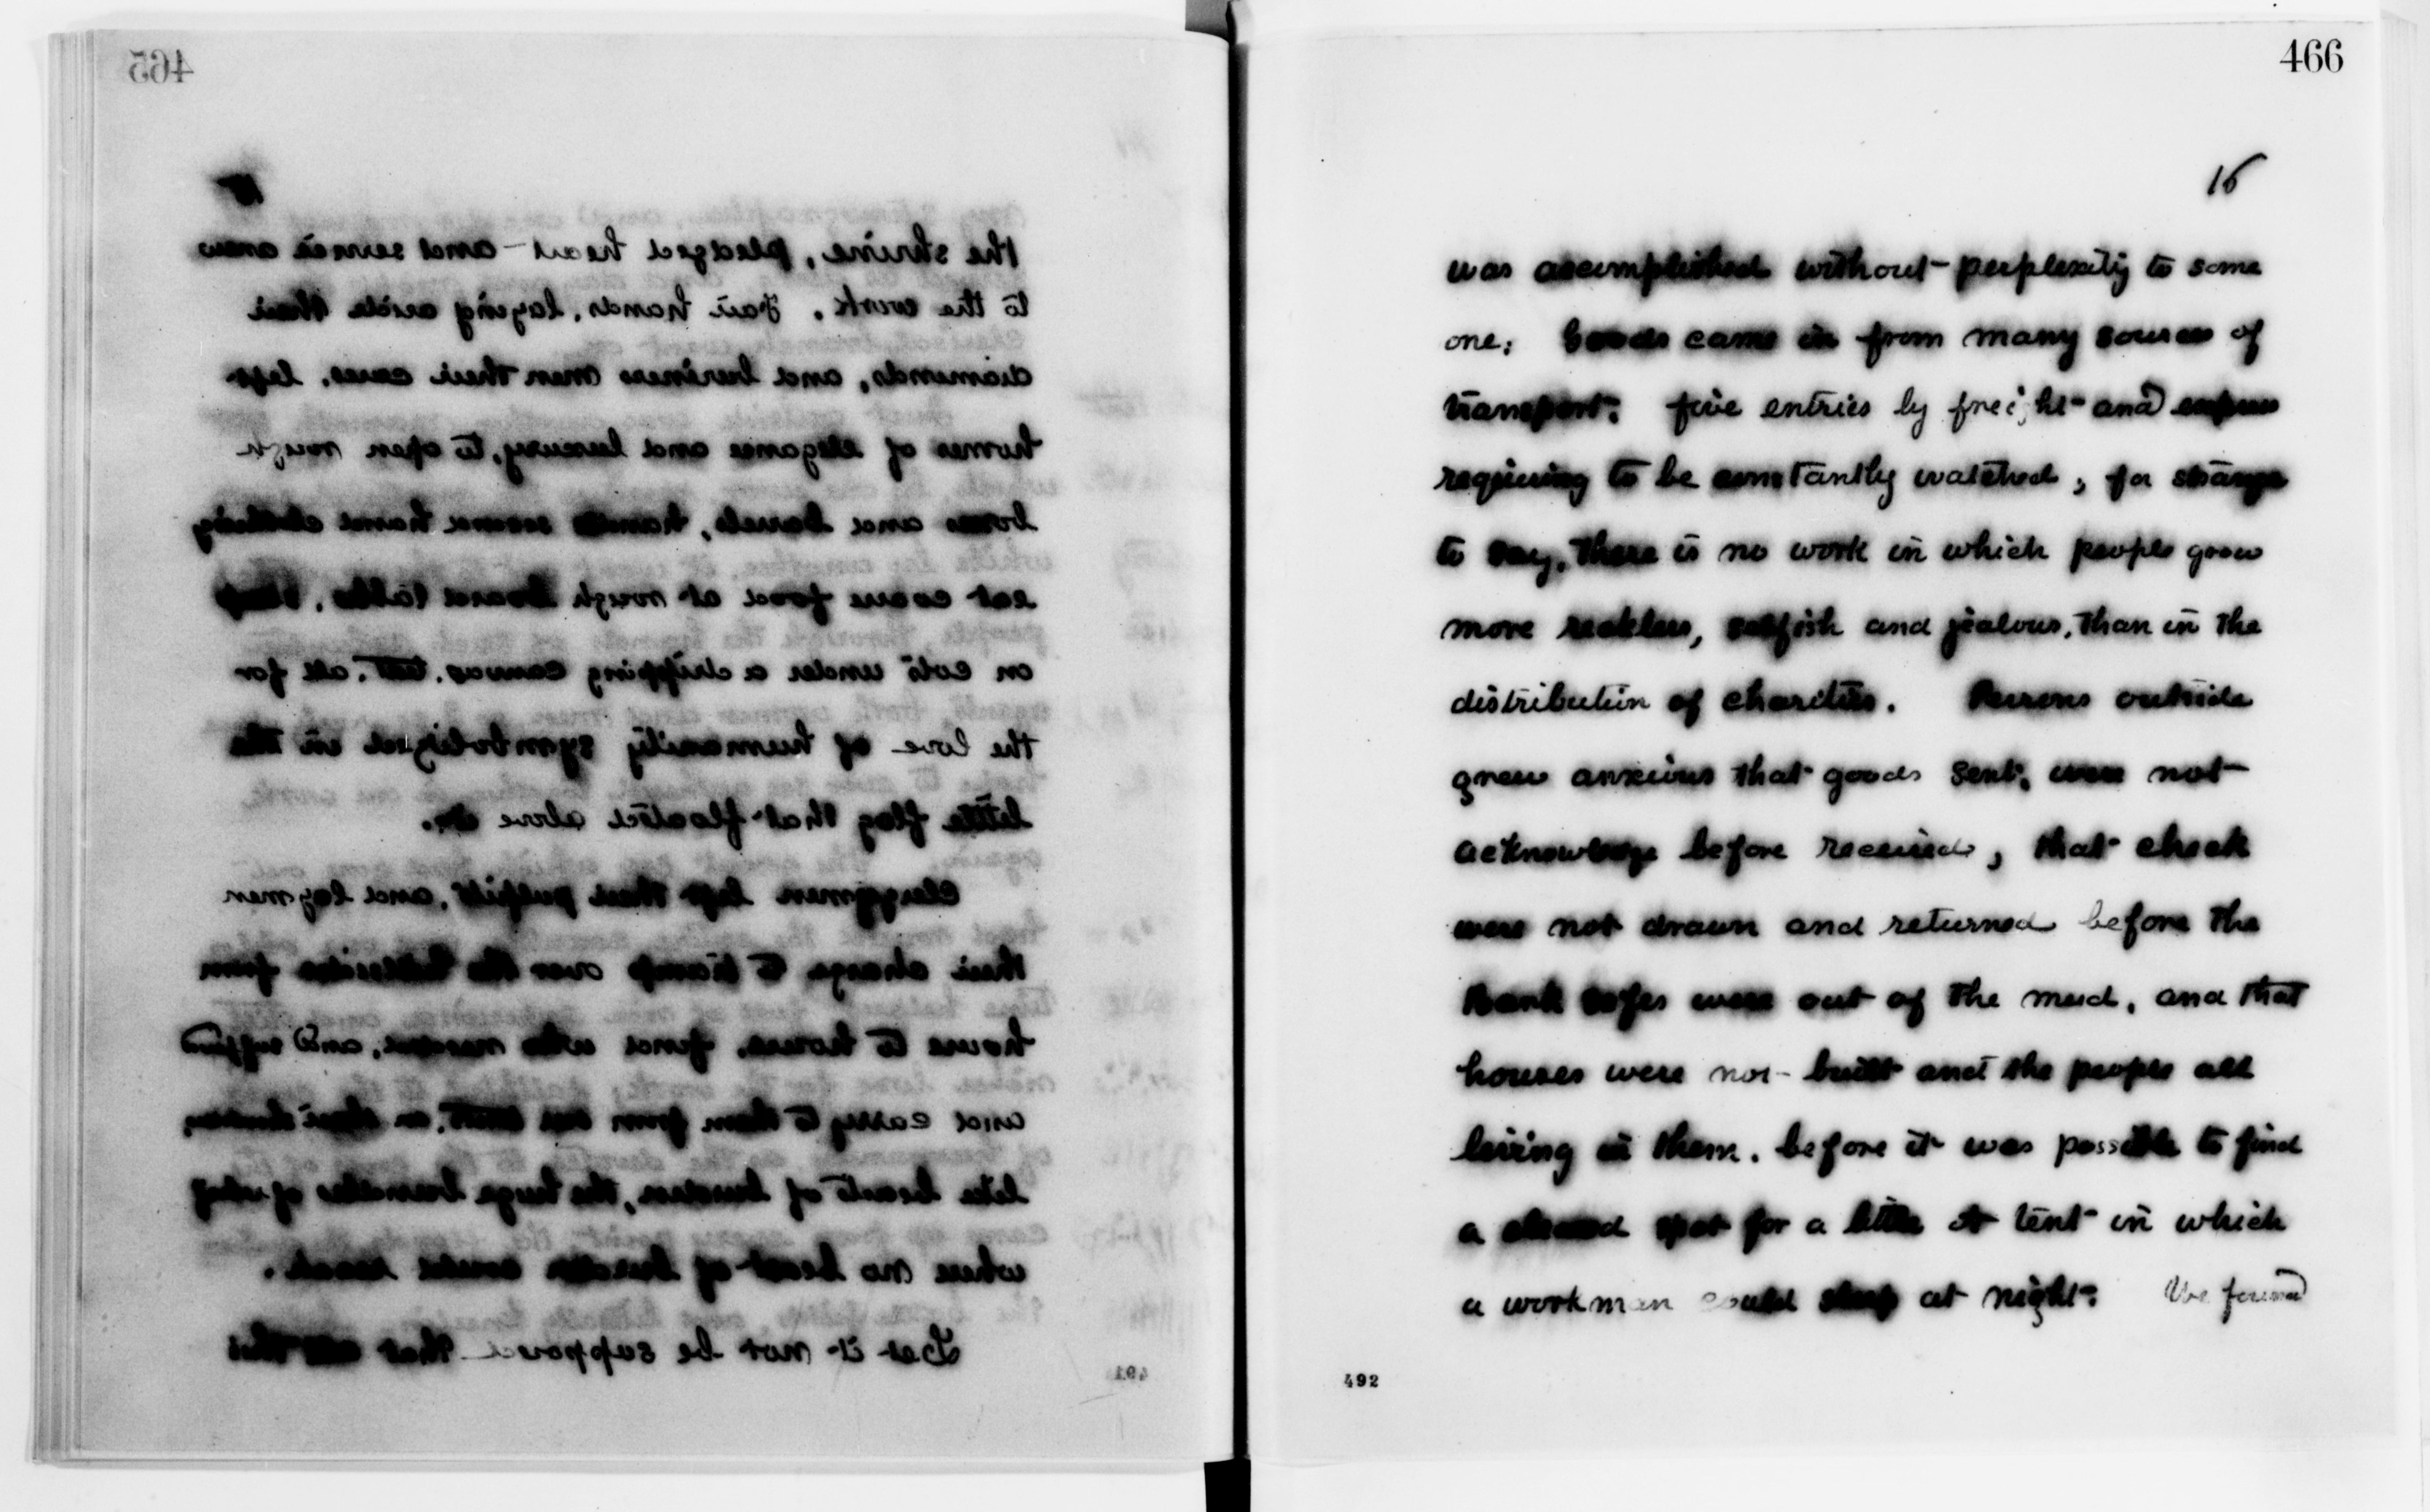 465
15
the shrine, pledged heart and service anew
to the work. Fair hands, laying aside their
diamonds, and business men their cares, left
homes of elegance and luxury, to open rough
boxes and barrels, handle second hand clothing
eat coarse food at rough board tables, sleep
on cots under a dripping canvas tent, all for
the love of humanity symbolized in the
little flag that floated above
Clergymen left their pulpits, and laymen
their charge to tramp over the hillsides from
house to house, find who needed, and suffered
and carry to them from our tents, on their shoulders
like beasts of burden, the huge bundles of relief
where no beast of burden could reach.
Let it not be supposed that all this
491
466
16
was accomplished without perplexity to some
one; Goods came in from many sources of
transport; five entries by freight and express
requiring to be constantly watched; for strange
to say, there is no work in which people grow
more reckless, selfish and jealous, than in the
distribution of charities. Persons outside
grew anxious that goods sent, were not
acknowledge before received, that check
were not drawn and returned before the
bank safes were out of the mud, and that
houses were not built and the people all
living in them, before it was possible to find
a cleared spot for a little tent in which
a workman could sleep at night; We found
492